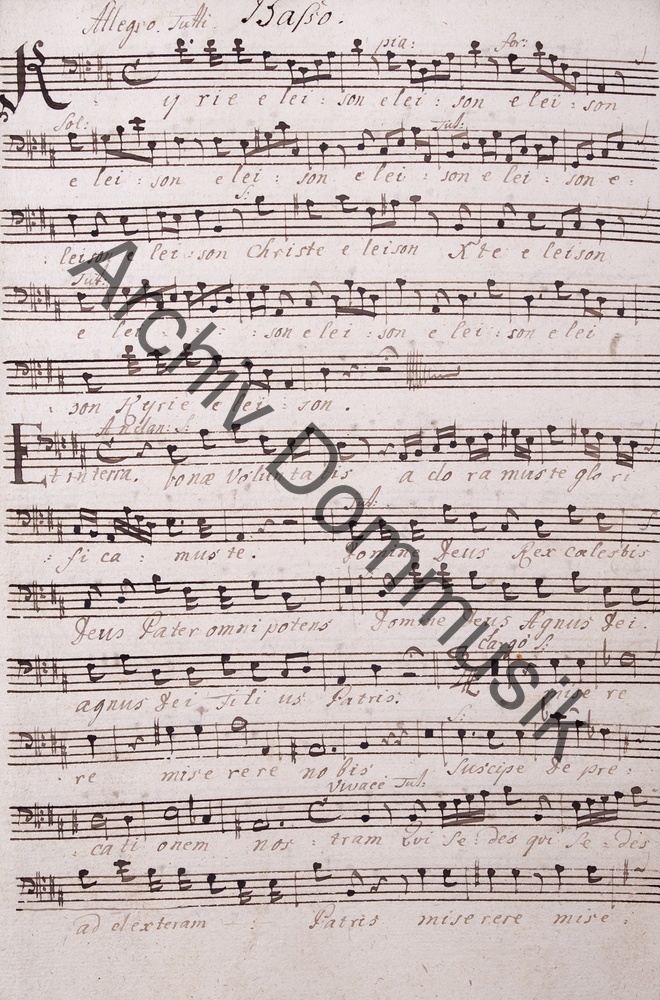 Allegro. Tutti. Basso.
pia: for:
Kyrie elei: son elei: son elei: son
Sol: Tut:
elei: son elei: son elei: son elei: son e:
S:
leison elei: son Christe eleison X'te eleison
Tut:
e lei : : : son elei: son elei: son elei
son Kyrie elei: son.
Andan: S:
Et in terra. bonæ voluntatis adoramus te glori
Tut:
: fica: mus te. Domine Deus Rex cœlestis
Deus Pater omnipotens Domine Deus Agnus Dei.
Largo S:
agnus Dei Fili us Patris. misere
S:
re miserere nobis Suscipe de pre:
Vivace Tut:
: cationem nos : tram Qui Se: des qui Se: des
ad dexteram Patris miserere mise:
Archiv Dommusik